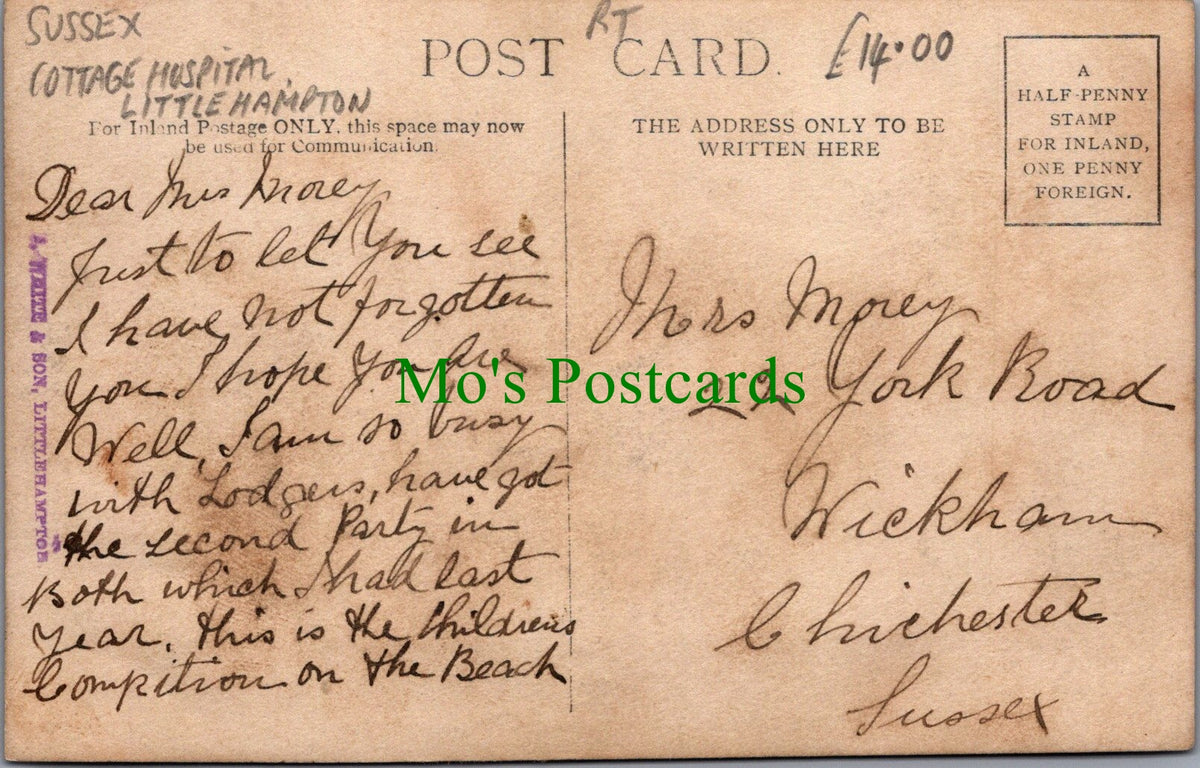 SUSSEX
COTTAGE HOSPITAL,
LITTLEHAMPTON
RT
£14.00
POST CARD.
For Inland Postage ONLY, this space may now
be used for Communication.
THE ADDRESS ONLY TO BE
WRITTEN HERE
A
HALF-PENNY
STAMP
FOR INLAND,
ONE PENNY
FOREIGN.
Dear Mrs Morey
Just to let You see
I have not forgotten
you I hope You are
Well, I am so busy
with Lodgers, have got
the second Party in
Both which I had last
Year. this is the Childrens
Compition on the Beach
WHITE & SON, LITTLEHAMPTON
Mrs Morey
22 York Road
Wickham
Chichester
Sussex
Mo's Postcards